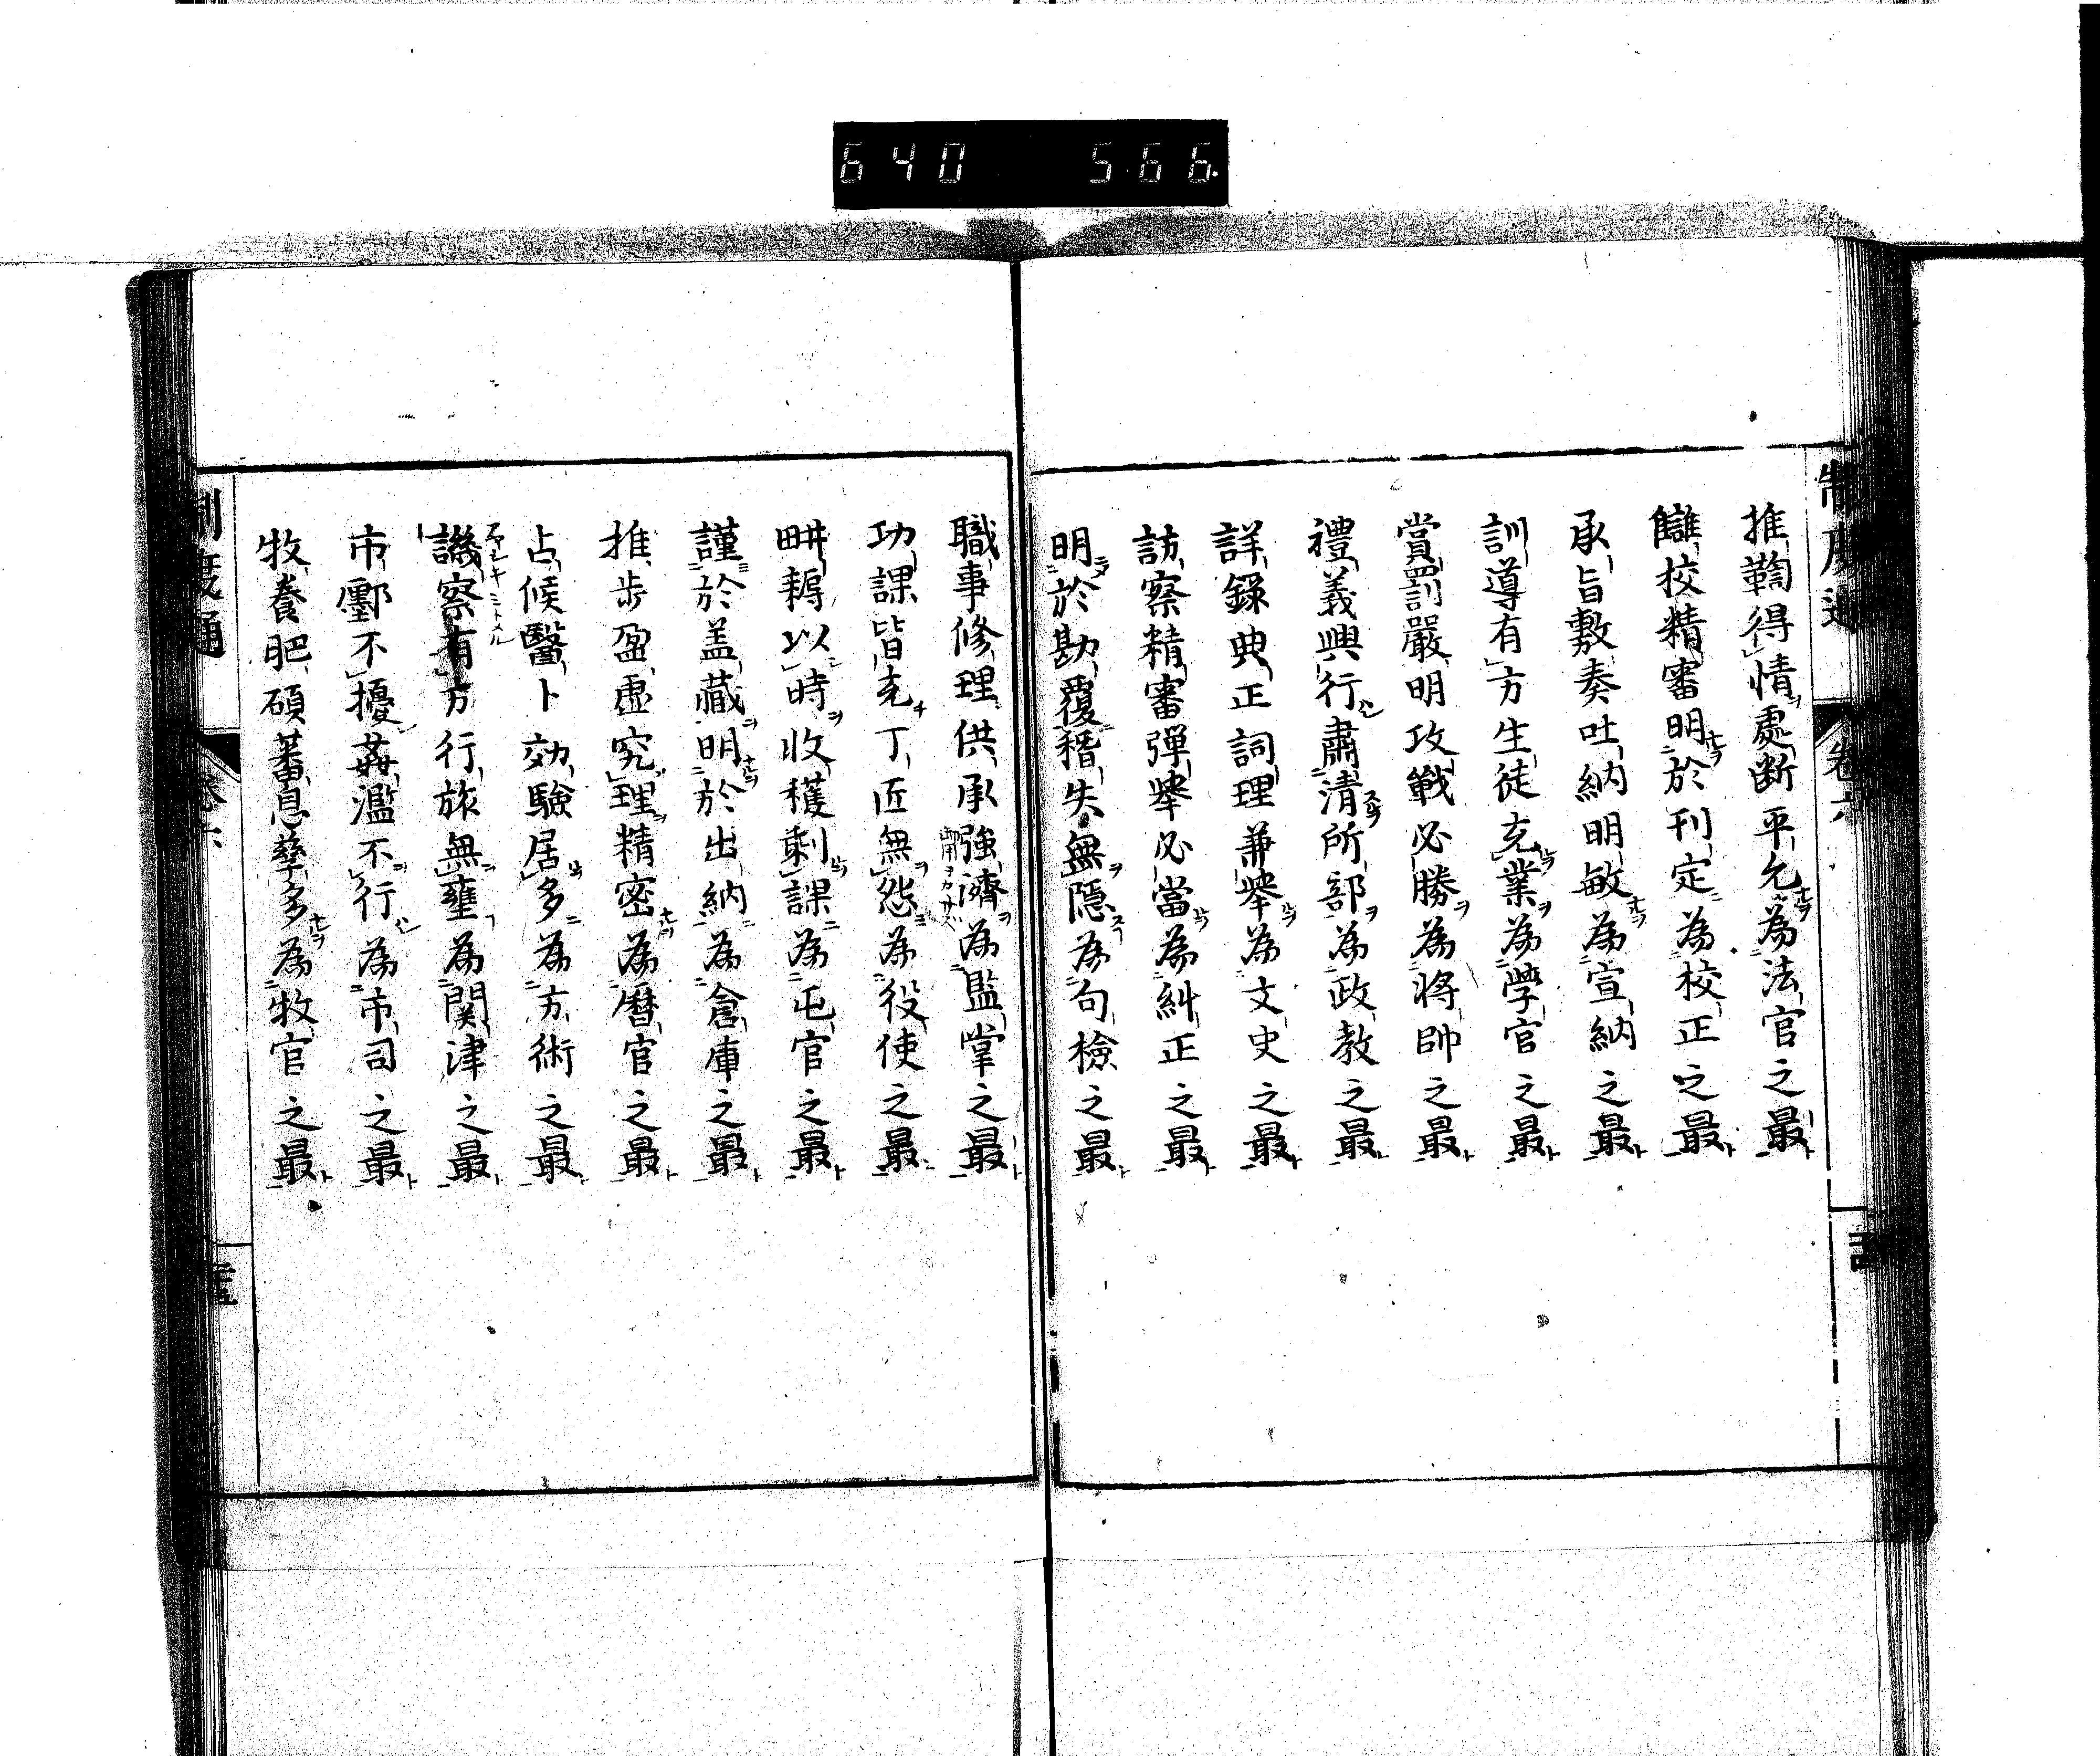 640 566
制度通 卷六
推鞫得情處断平允為法官之最
讎校精審明於刊定為校正之最
承旨敷奏吐納明敏為宣納之最
訓導有方生徒充業為學官之最
賞罰嚴明攻戰必勝為将帥之最
禮義興行肅清所部為政教之最
詳錄典正詞理兼舉為文史之最
訪察精審彈舉必當為糾正之最
明於勘覆稽失無隱為句檢之最
職事修理供承強濟為監掌之最
功課皆充丁匠無怨為役使之最
畊耨以時收穫剩課為屯官之最
謹於盖藏明於出納為倉庫之最
推步盈虚究理精密為曆官之最
占候醫卜効驗居多為方術之最
譏察有方行旅無壅為関津之最
市鄽不擾姦濫不行為市司之最
牧養肥碩蕃息孳多為牧官之最
制度通